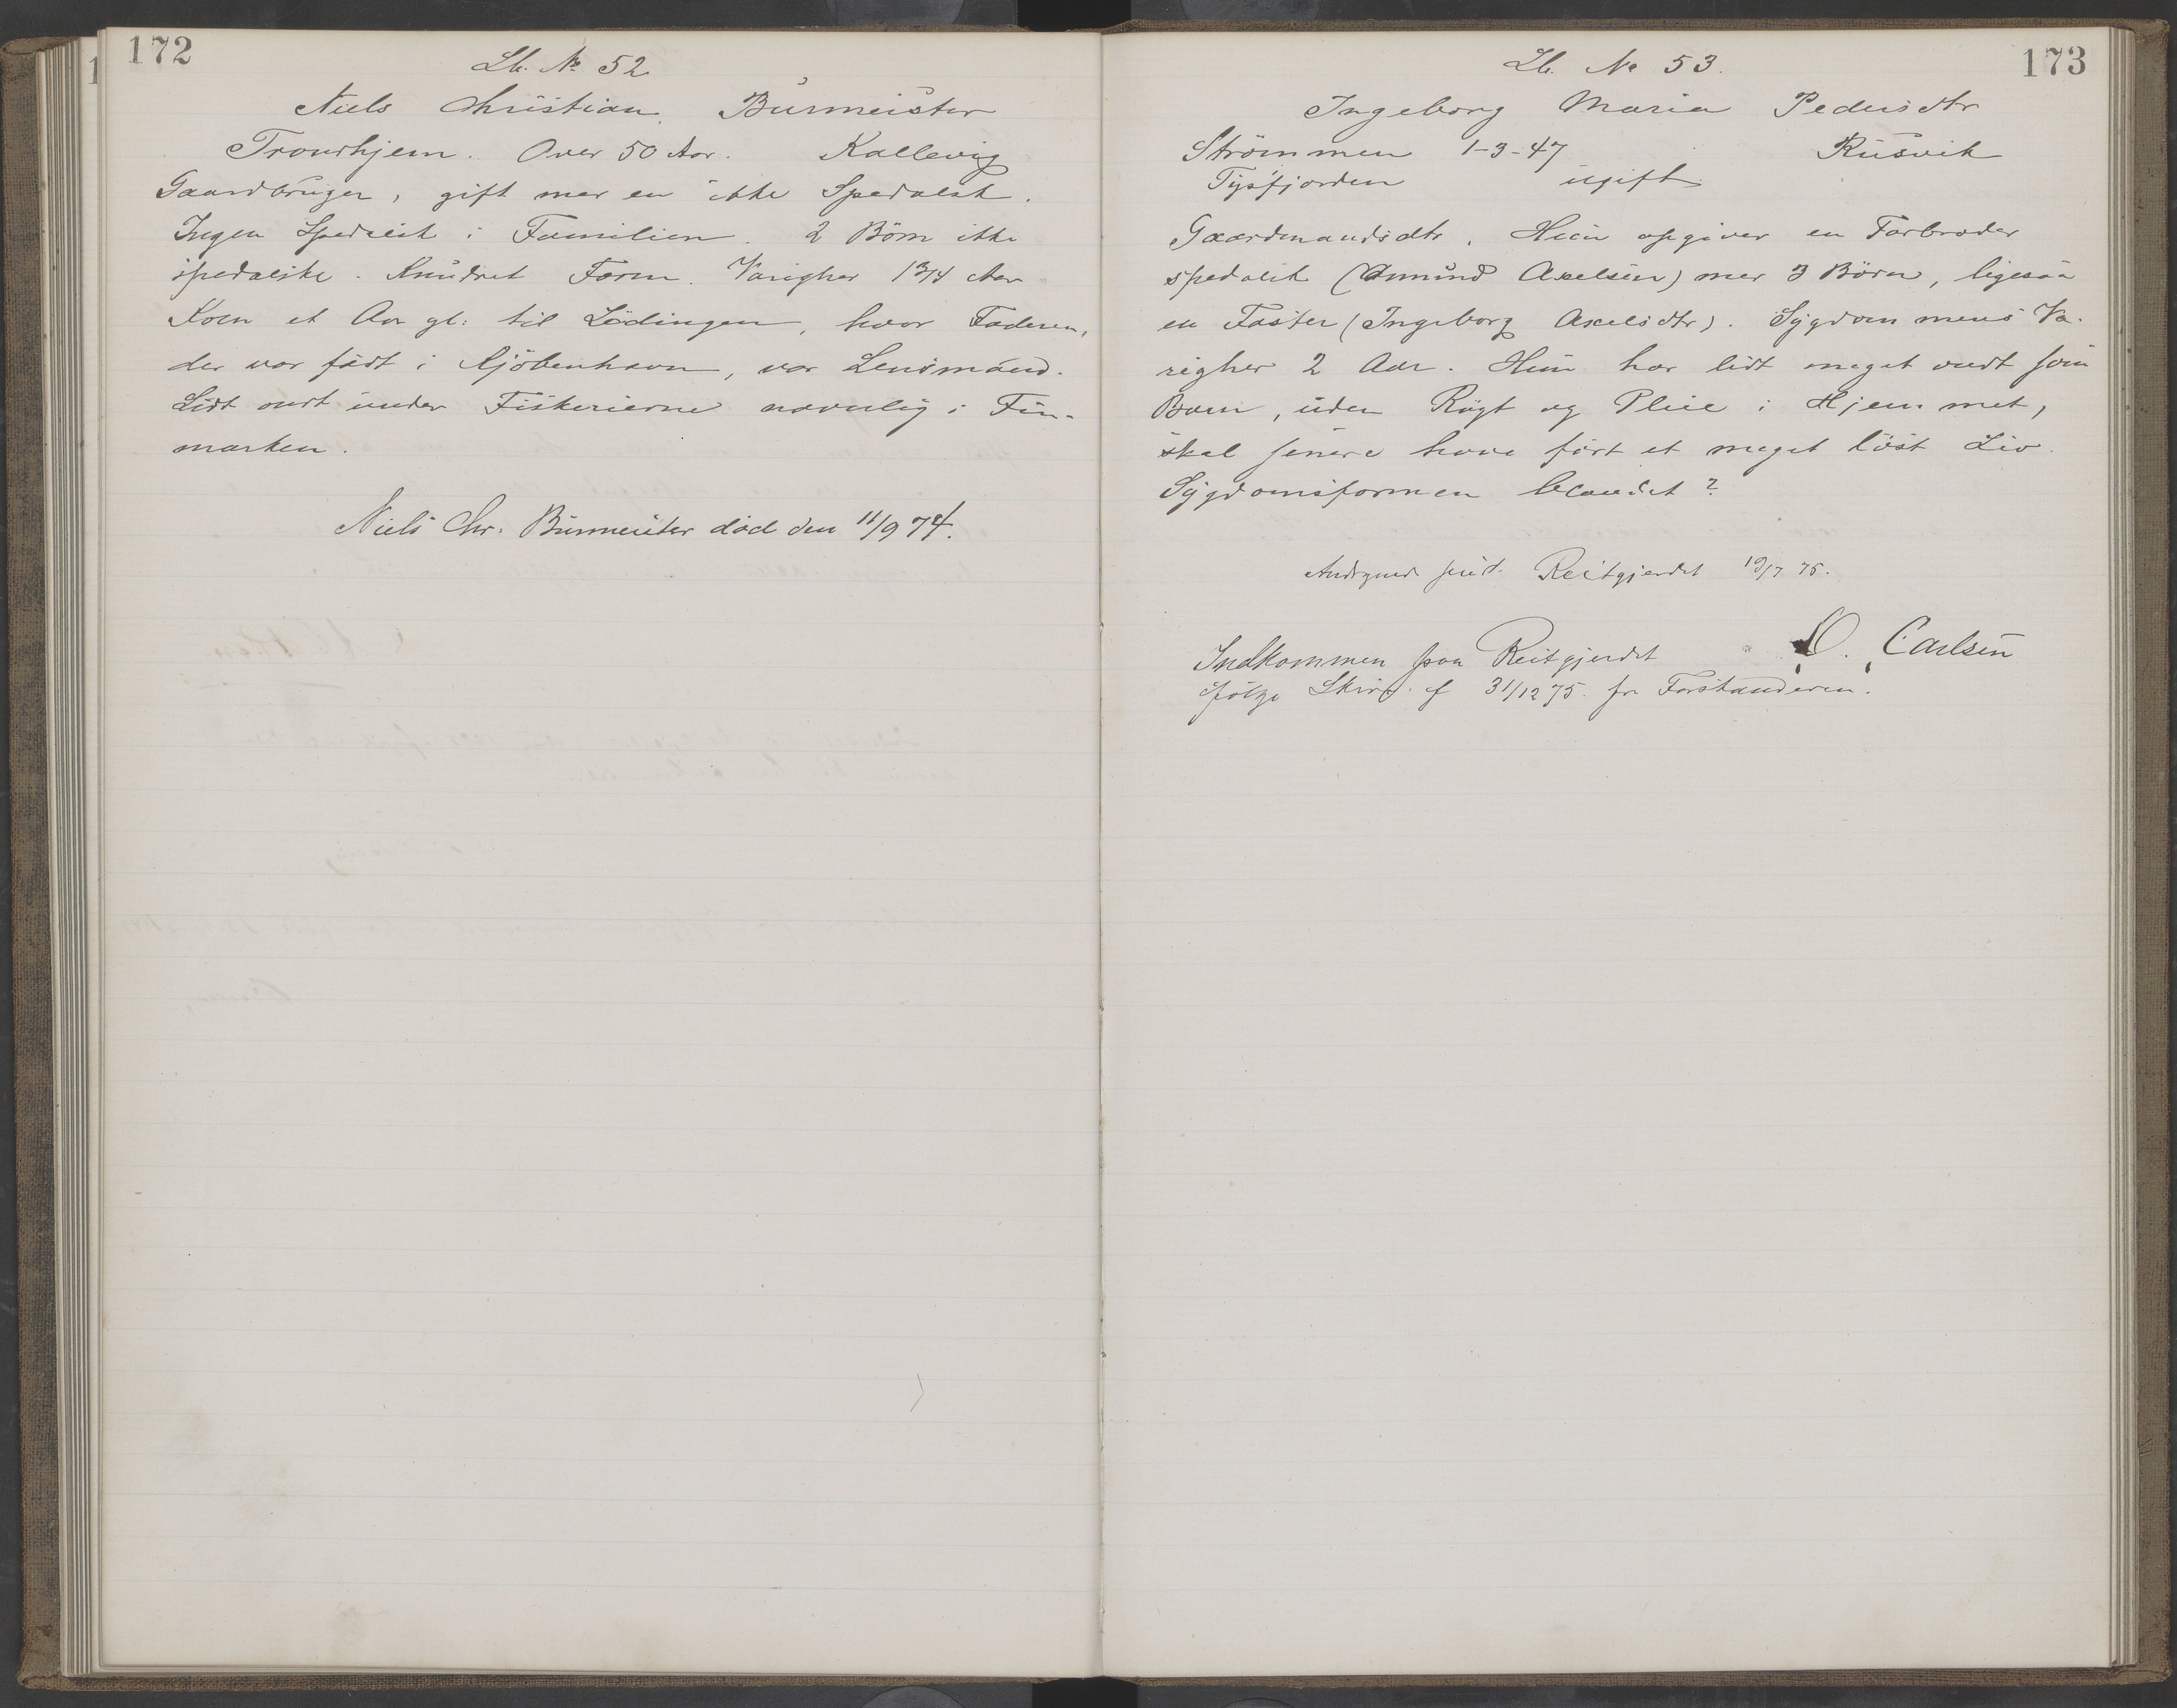 172
Lb. No 52
Niels Christian Burmeister
Trondhjem. Over 50 Aar. Kallevig
Gaardbruger, gift med en ikke Spedalsk.
Ingen Spedalsk i Familien. 2 Börn ikke
spedalske. Knudret Form. Varighed 1 3/4 Aar
Kom et Aar gl: til Lödingen, hvor Faderen,
der var födt i Kjöbenhavn, var Lensmand.
Lidt ondt under Fiskerierne navnlig i Fin-
marken.
Niels Chr. Burmeister död den 11/9 74.
173
Lb. No 53.
Ingeborg Maria Pedersdtr
Strömmen 1-3-47 Rusvik
Tysfjorden ugift
Gaardmandsdtr. Hun opgiver en Farbroder
spedalsk (Amund Axelsen) med 3 Börn, ligesaa
en Faster (Ingeborg Axelsdtr). Sygdommens Va-
righed 2 Aar. Hun har lidt meget ondt som
Barn, uden Rögt og Pleie i Hjemmet,
skal senere have fört et meget löst Liv.
Sygdomsformen blandet?
Reitgjerdet 19/7 75.
Indkommen paa Reitgjerdet O. Carlsen
ifölge Skriv. af 31/12 75 fra Forstanderen.